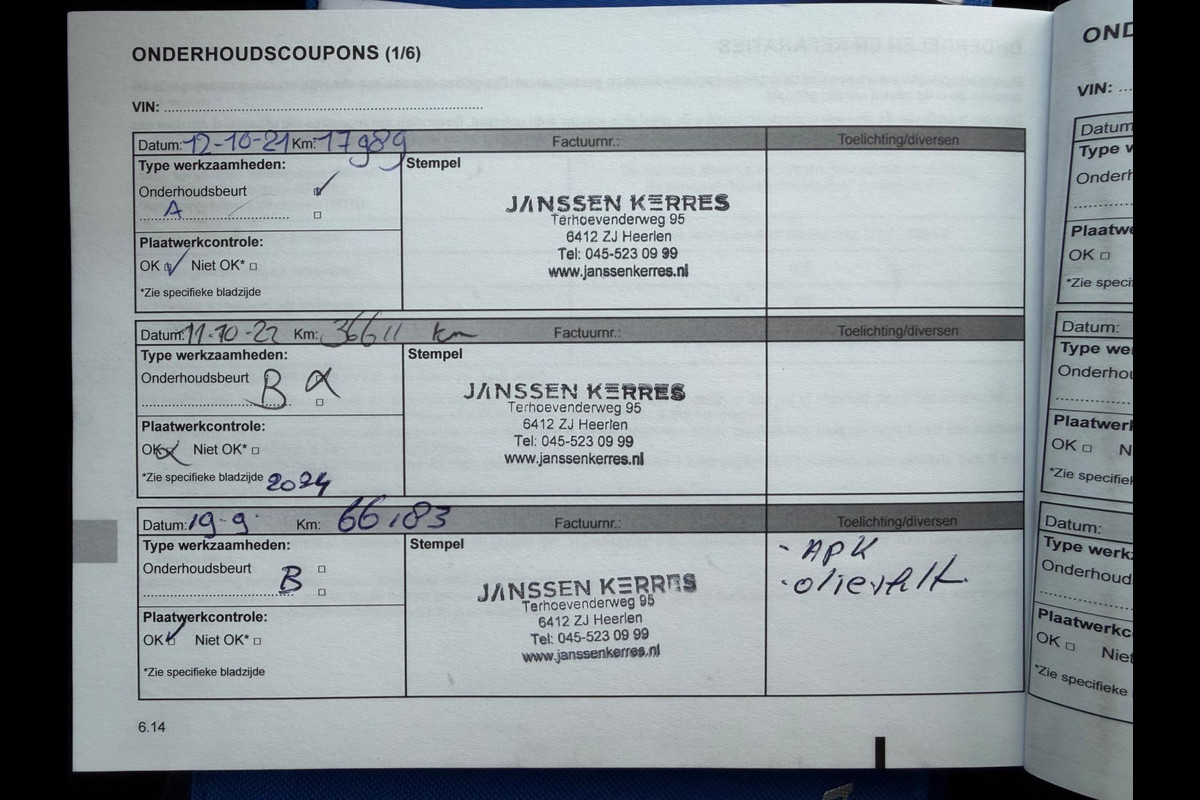 ONDERHOUDSCOUPONS (1/6)
VIN:
Datum: 12-10-21 Km: 17989 Factuurnr.: Toelichting/diversen
Type werkzaamheden: Stempel
Onderhoudsbeurt
A
Plaatwerkcontrole:
OK Niet OK*
*Zie specifieke bladzijde
JANSSEN KERRES
Terhoevenderweg 95
6412 ZJ Heerlen
Tel: 045-523 09 99
www.janssenkerres.nl
Datum: 11-10-22 Km: 36611 km Factuurnr.: Toelichting/diversen
Type werkzaamheden: Stempel
Onderhoudsbeurt B
Plaatwerkcontrole:
OK Niet OK*
*Zie specifieke bladzijde 2024
JANSSEN KERRES
Terhoevenderweg 95
6412 ZJ Heerlen
Tel: 045-523 09 99
www.janssenkerres.nl
Datum: 19-9- Km: 66183 Factuurnr.: Toelichting/diversen
Type werkzaamheden: Stempel
Onderhoudsbeurt
B
Plaatwerkcontrole:
OK Niet OK*
*Zie specifieke bladzijde
JANSSEN KERRES
Terhoevenderweg 95
6412 ZJ Heerlen
Tel: 045-523 09 99
www.janssenkerres.nl
- APK
6.14
OND
VIN:
Datum
Type w
Onderh
Plaatwe
OK
*Zie speci
Datum:
Type we
Onderhou
Plaatwerk
OK N
*Zie specifiek
Datum:
Type werkz
Onderhoud
Plaatwerkc
OK Niet
*Zie specifieke